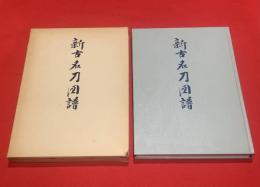 新古名刀図譜
新古名刀図譜